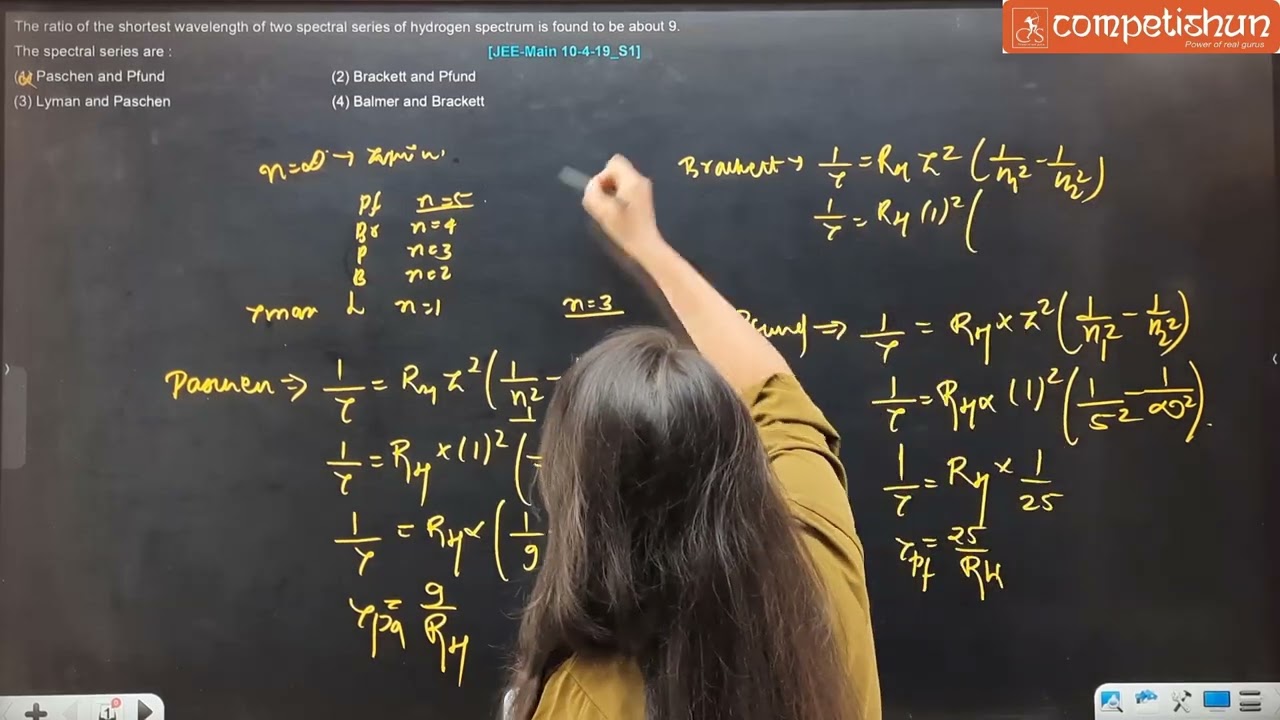 The ratio of the shortest wavelength of two spectral series of hydrogen spectrum is found to be about 9.
The spectral series are :
[JEE-Main 10-4-19_S1]
Paschen and Pfund
(2) Brackett and Pfund
(3) Lyman and Paschen
(4) Balmer and Brackett
competishun
Power of real gurus
n=∞ →
Pf n=5
Br n=4
P n=3
B n=2
L n=1
n=3
Brackett → 1/λ = R_H Z² (1/n₁² - 1/n₂²)
1/λ = R_H (1)² (
Paschen ⇒ 1/λ = R_H Z² (1/n₁² -
1/λ = R_H × (1)² (
1/λ = R_H × (1/9
λ_Pa = 9/R_H
⇒ 1/λ = R_H × Z² (1/n₁² - 1/n₂²)
1/λ = R_H × (1)² (1/5² - 1/∞²)
1/λ = R_H × 1/25
λ_Pf = 25/R_H